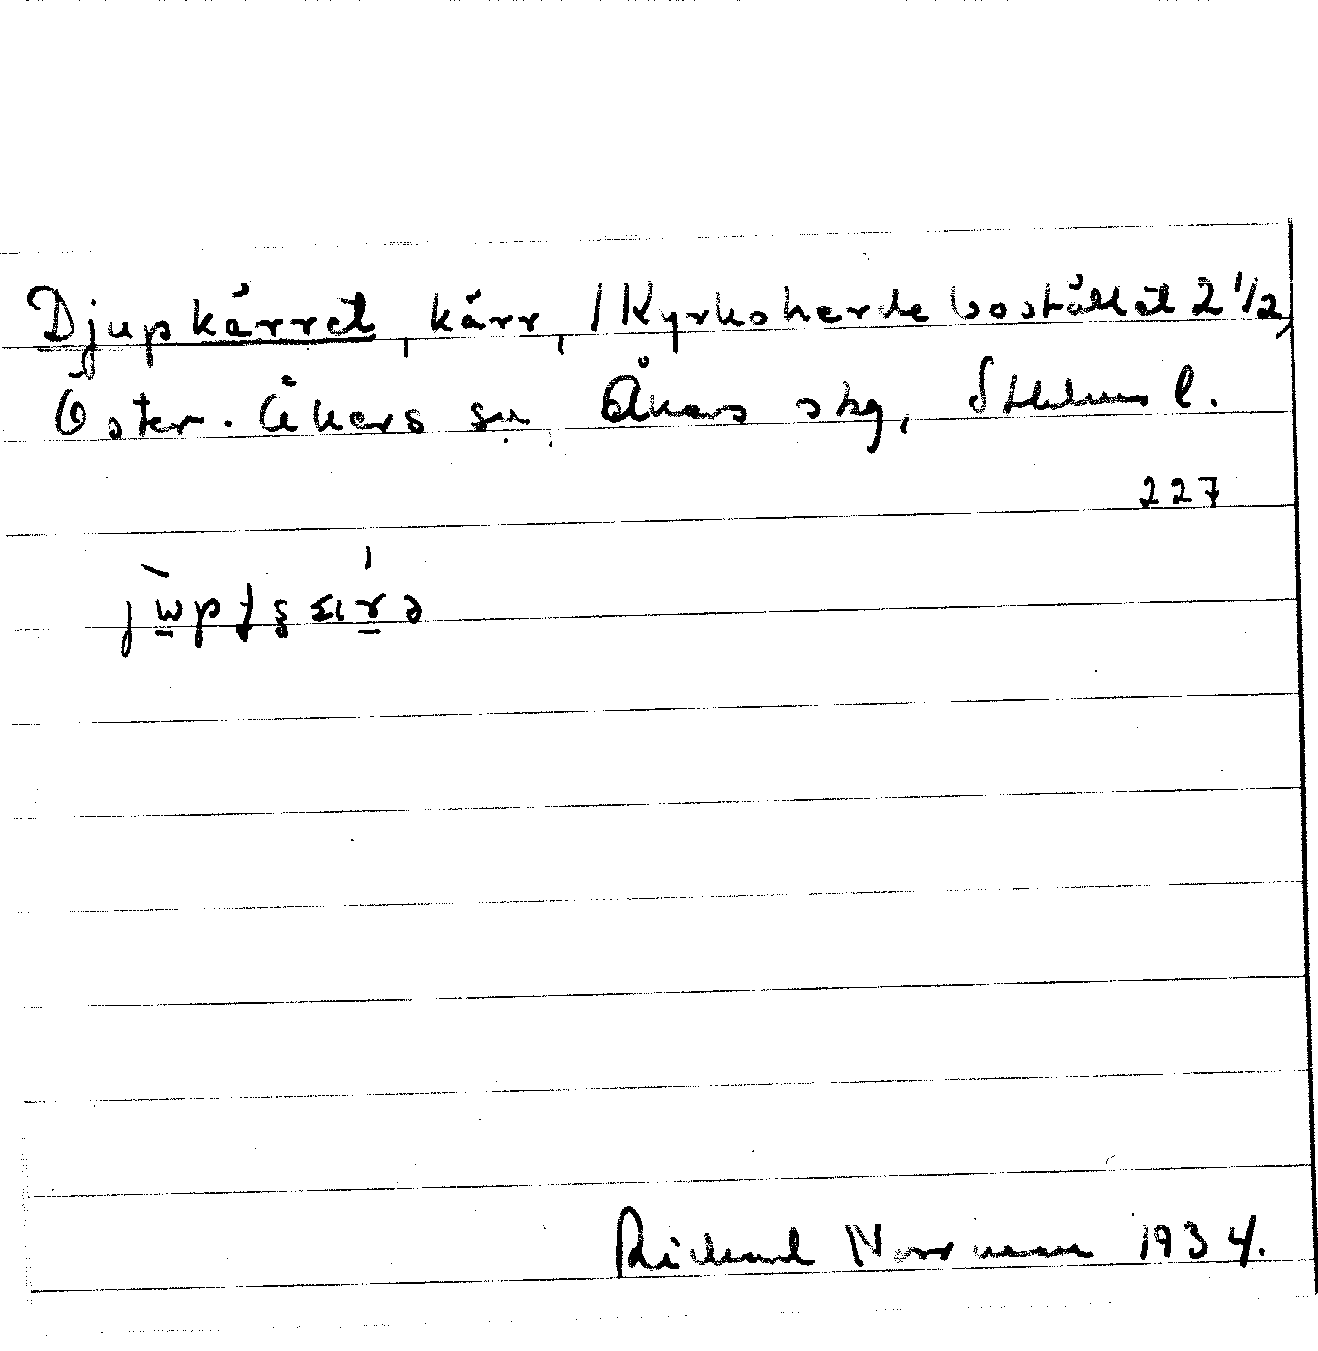 Djupkärret, kärr, / Kyrkoherdebostället 2 1/2,
Öster-Åkers sn, Åkers skg, Sthlms l.
227
Richard Norrman 1934.